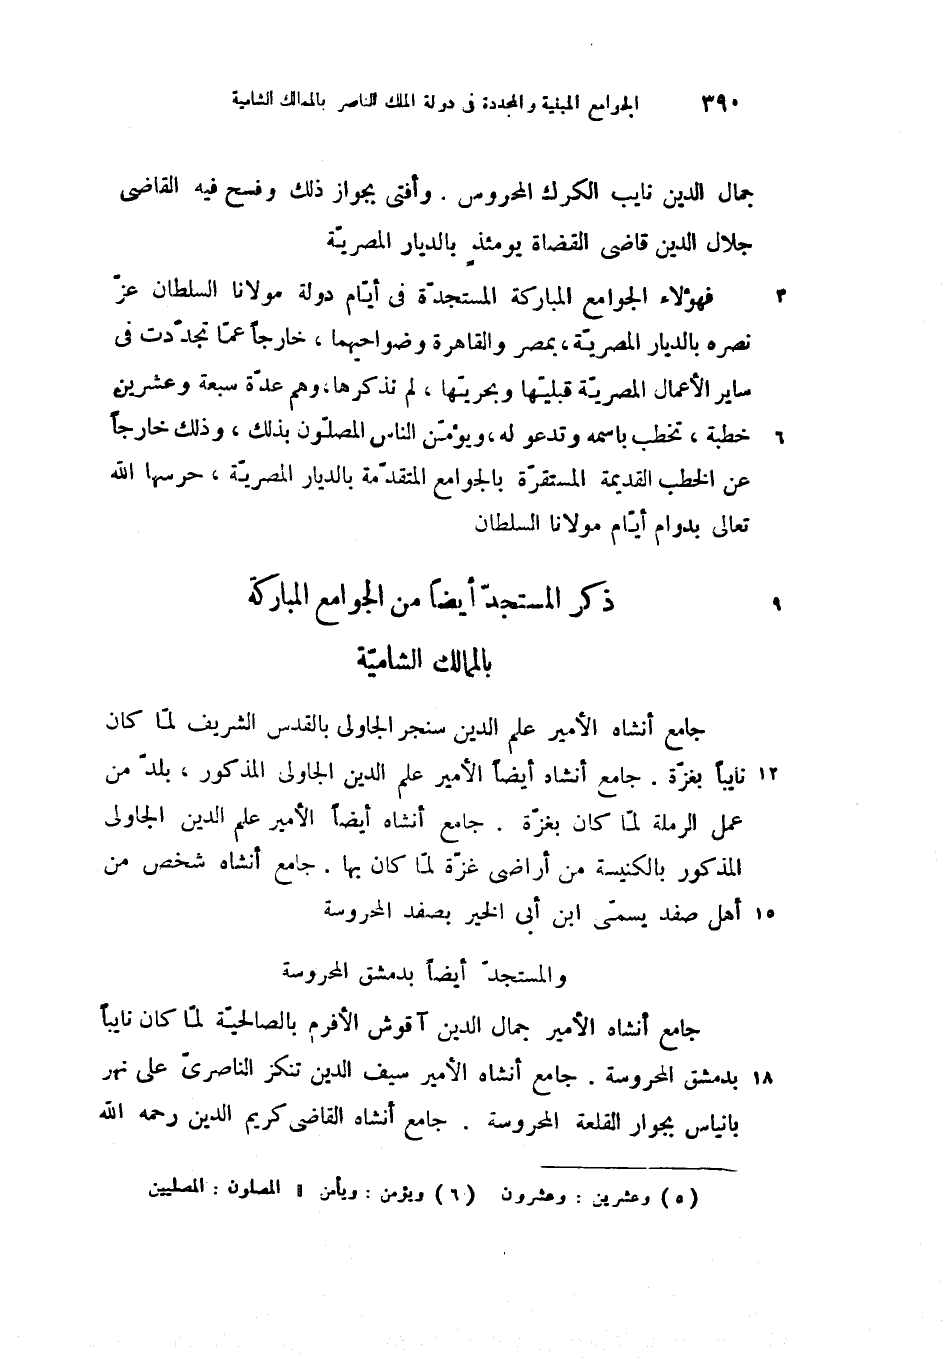 ٣٩٠ الجوامع المبنية والمجددة فى دولة الملك الناصر بالممالك الشامية
جمال الدين نايب الكرك المحروس . وأفتى بجواز ذلك وفسح فيه القاضى
جلال الدين قاضى القضاة يومئذٍ بالديار المصريّة
٣ فهؤلاء الجوامع المباركة المستجدّة فى أيّام دولة مولانا السلطان عزّ
نصره بالديار المصريّة، بمصر والقاهرة وضواحيهما ، خارجاً عمّا تجدّدت فى
ساير الأعمال المصريّة قبليّها وبحريّها ، لم نذكرها، وهم عدّة سبعة وعشرين
٦ خطبة ، تخطب باسمه وتدعو له، ويؤمّن الناس المصلّون بذلك ، وذلك خارجاً
عن الخطب القديمة المستقرّة بالجوامع المتقدّمة بالديار المصريّة ، حرسها الله
تعالى بدوام أيّام مولانا السلطان
٩ ذكر المستجدّ أيضاً من الجوامع المباركة
بالممالك الشاميّة
جامع أنشاه الأمير علم الدين سنجر الجاولى بالقدس الشريف لمّا كان
١٢ نايباً بغزّة . جامع أنشاه أيضاً الأمير علم الدين الجاولى المذكور ، بلدّ من
عمل الرملة لمّا كان بغزّة . جامع أنشاه أيضاً الأمير علم الدين الجاولى
المذكور بالكنيسة من أراضى غزّة لمّا كان بها . جامع أنشاه شخص من
١٥ أهل صفد يسمّى ابن أبى الخير بصفد المحروسة
والمستجدّ أيضاً بدمشق المحروسة
جامع أنشاه الأمير جمال الدين آقوش الأفرم بالصالحيّة لمّا كان نايباً
١٨ بدمشق المحروسة . جامع أنشاه الأمير سيف الدين تنكز الناصرىّ على نهر
بانياس بجوار القلعة المحروسة . جامع أنشاه القاضى كريم الدين رحمه الله
(٥) وعشرين : وعشرون (٦) ويؤمن : ويأمن ‖ المصلون : المصليين